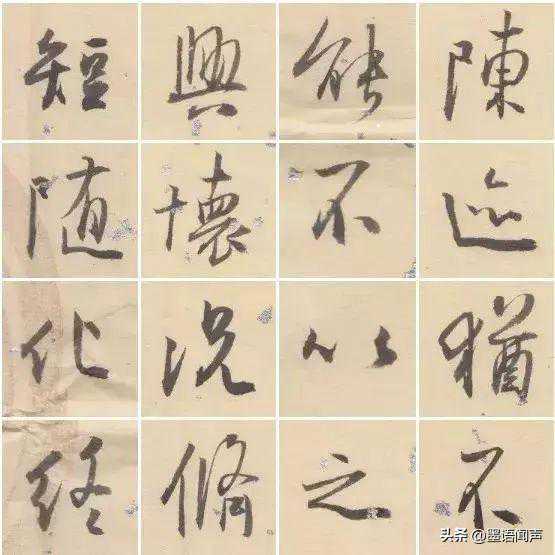 陳迹猶不
能不以之
興懷況脩
短随化終
头条 @墨语闻声